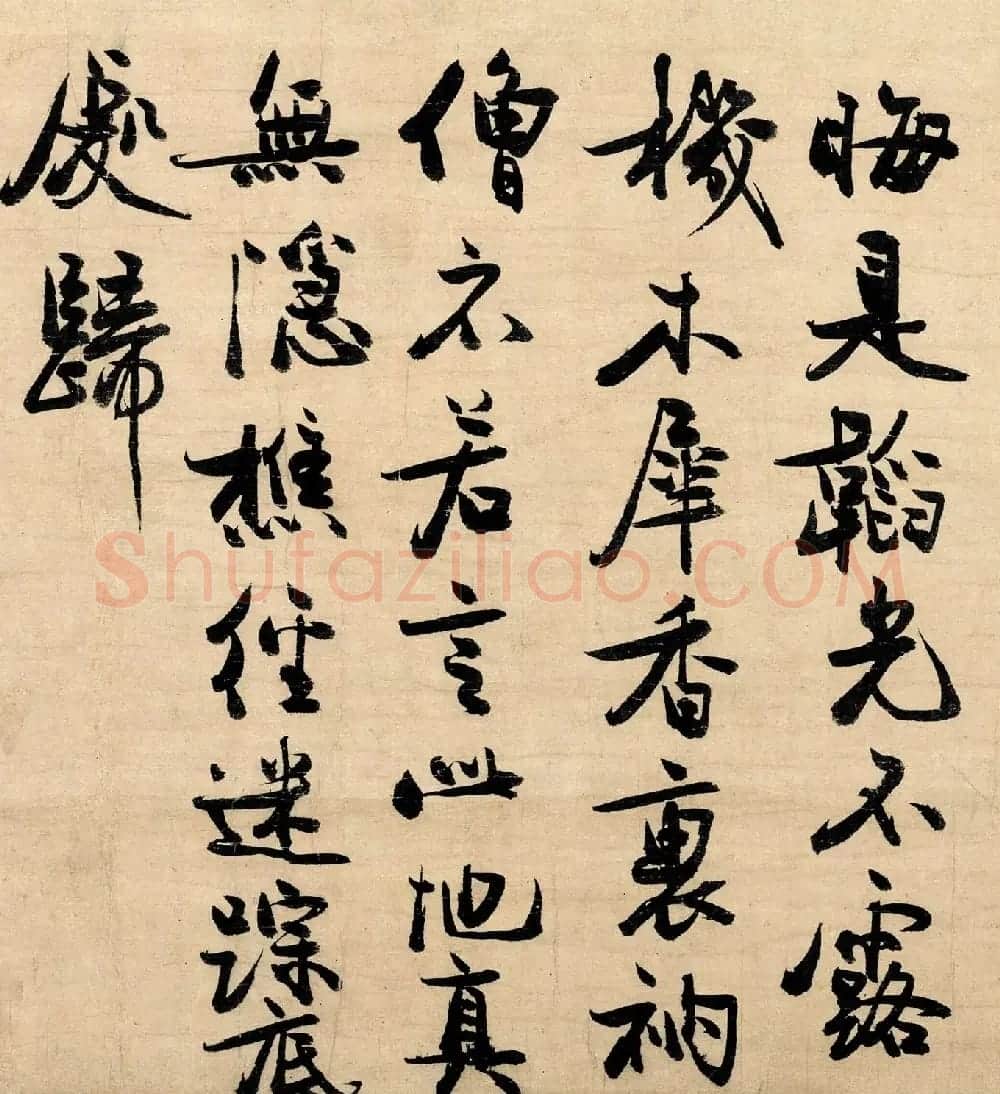 晦是韜光不露
機木犀香裏衲
僧衣若言此地真
無隱樵徑迷踪底
處歸
Shufaziliao.COM